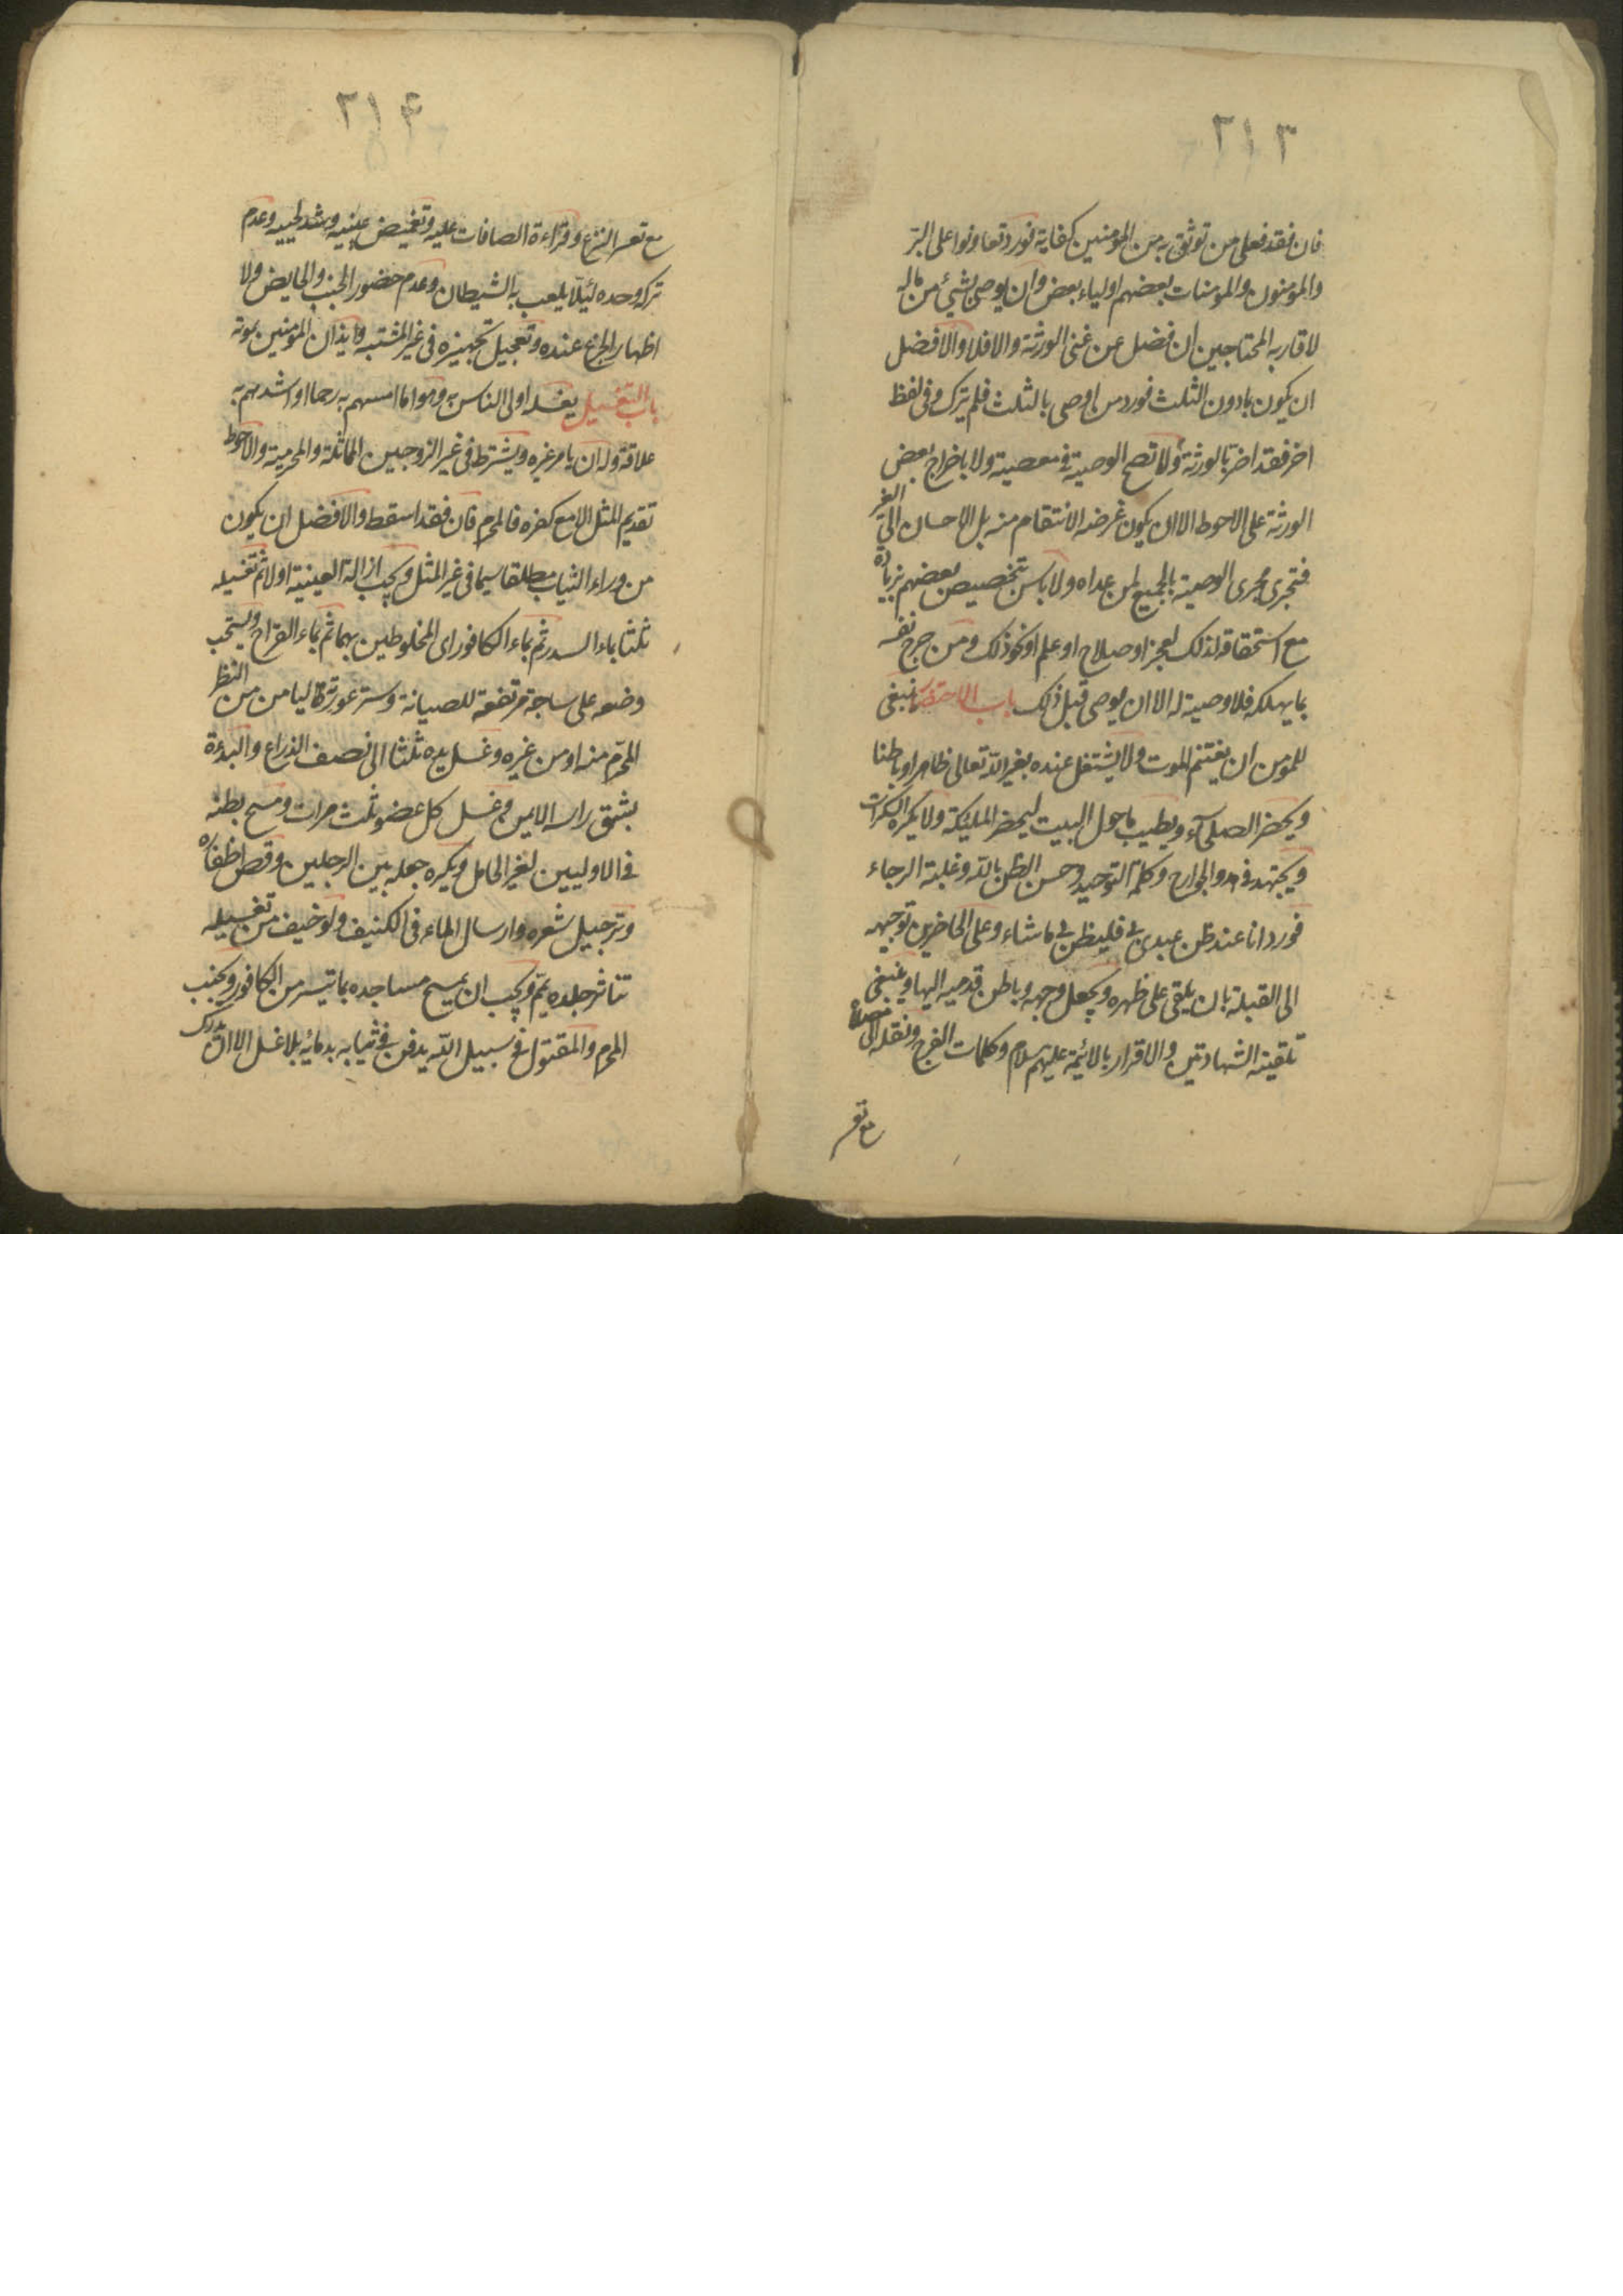 ٢١٣
فان فقد فعلى من توثق به من المؤمنين كفاية فورد تعاونوا على البرّ
والمؤمنون والمؤمنات بعضهم اولياء بعض وان يوصى بشئ من ماله
لاقاربه المحتاجين ان فضل عن غنى الورثة والا فلا والافضل
ان يكون بادون الثلث فورد من اوصى بالثلث فلم يترك وفى لفظ
اخر فقد اضر بالورثة ولا تصح الوصية فى معصية ولا باخراج بعض
الورثة على الاحوط الا ان يكون غرضه الانتقام منه بل الاحسان الى الغير
فتجرى مجرى الوصية بالجميع لمن عداه ولا باس بتخصيص بعضهم بزيادة
مع استحقاقه لذلك لعجز او صلاح او علم او نحو ذلك ومن جرح نفسه
بما يهلكه فلا وصية له الا ان يوصى قبل ذلك باب الاحتضار ينبغى
للمؤمن ان يغتنم الموت ولا يشتغل عنده بغير الله تعالى ظاهرا وباطنا
ويحضر الصلحآء ويطيب ما حول البيت ليحضر الملئيكة ولا يكره السكرات
ويجتهد فى والجوارح وكلمة التوحيد وحسن الظن بالله وغلبة الرجاء
فورد انا عند ظن عبدى بى فليظن بى ما شاء وعلى الحاضرين توجيهه
الى القبلة بان يلقى على ظهره ويجعل وجهه وباطن قدميه اليها وينبغى
تلقينه الشهادتين والاقرار بالائمة عليهم سلام وكلمات الفرج ونقله الى مصلاه
مع تعسر
٢١۴
مع تعسر النزع وقراءة الصافات عليه وتغميض عينيه وشد لحييه وعدم
تركه وحده لئيلّا يلعب به الشيطان وعدم حضور الجنب والحايض ولا
اظهار الجزع عنده وتعجيل تجهيزه فى غير المشتبه وايذان المؤمنين بموته
باب التغسيل يغسله اولى الناس به وهو اما امسهم به رحما او اشدهم به
علاقة وله ان يامر غيره ويشترط فى غير الزوجين المماثلة والمحرمية والاحوط
تقديم المثل الا مع كفره فالمحرم فان فقد اسقط والافضل ان يكون
من وراء الثياب مطلقا سيما فى غير المثل ويجب ازالة العينية اولا ثم تغسيله
ثلثا بماء السدر ثم بماء الكافور اى المخلوطين بهما ثم بماء القراح ويستحب
وضعه على ساجة مرتفعة للصيانة وستر عورته ليامن من النظر
المحرّم منه او من غيره وغسل يده ثلثا الى نصف الذراع والبدءة
بشق راسه الايمن وغسل كل عضو ثلث مرات ومسح بطنه
فى الاوليين لغير الحامل ويكره جعله بين الرجلين وقص اظفاره
وترجيل شعره وارسال الماء فى الكنيف ولو خيف من تغسيله
تناثر جلده يمّم ويجب ان يمسح مساجده بما تيسر من الكافور ويجنب
المحرم والمقتول فى سبيل الله يدفن فى ثيابه بدمائه بلا غسل الا ان يدرك